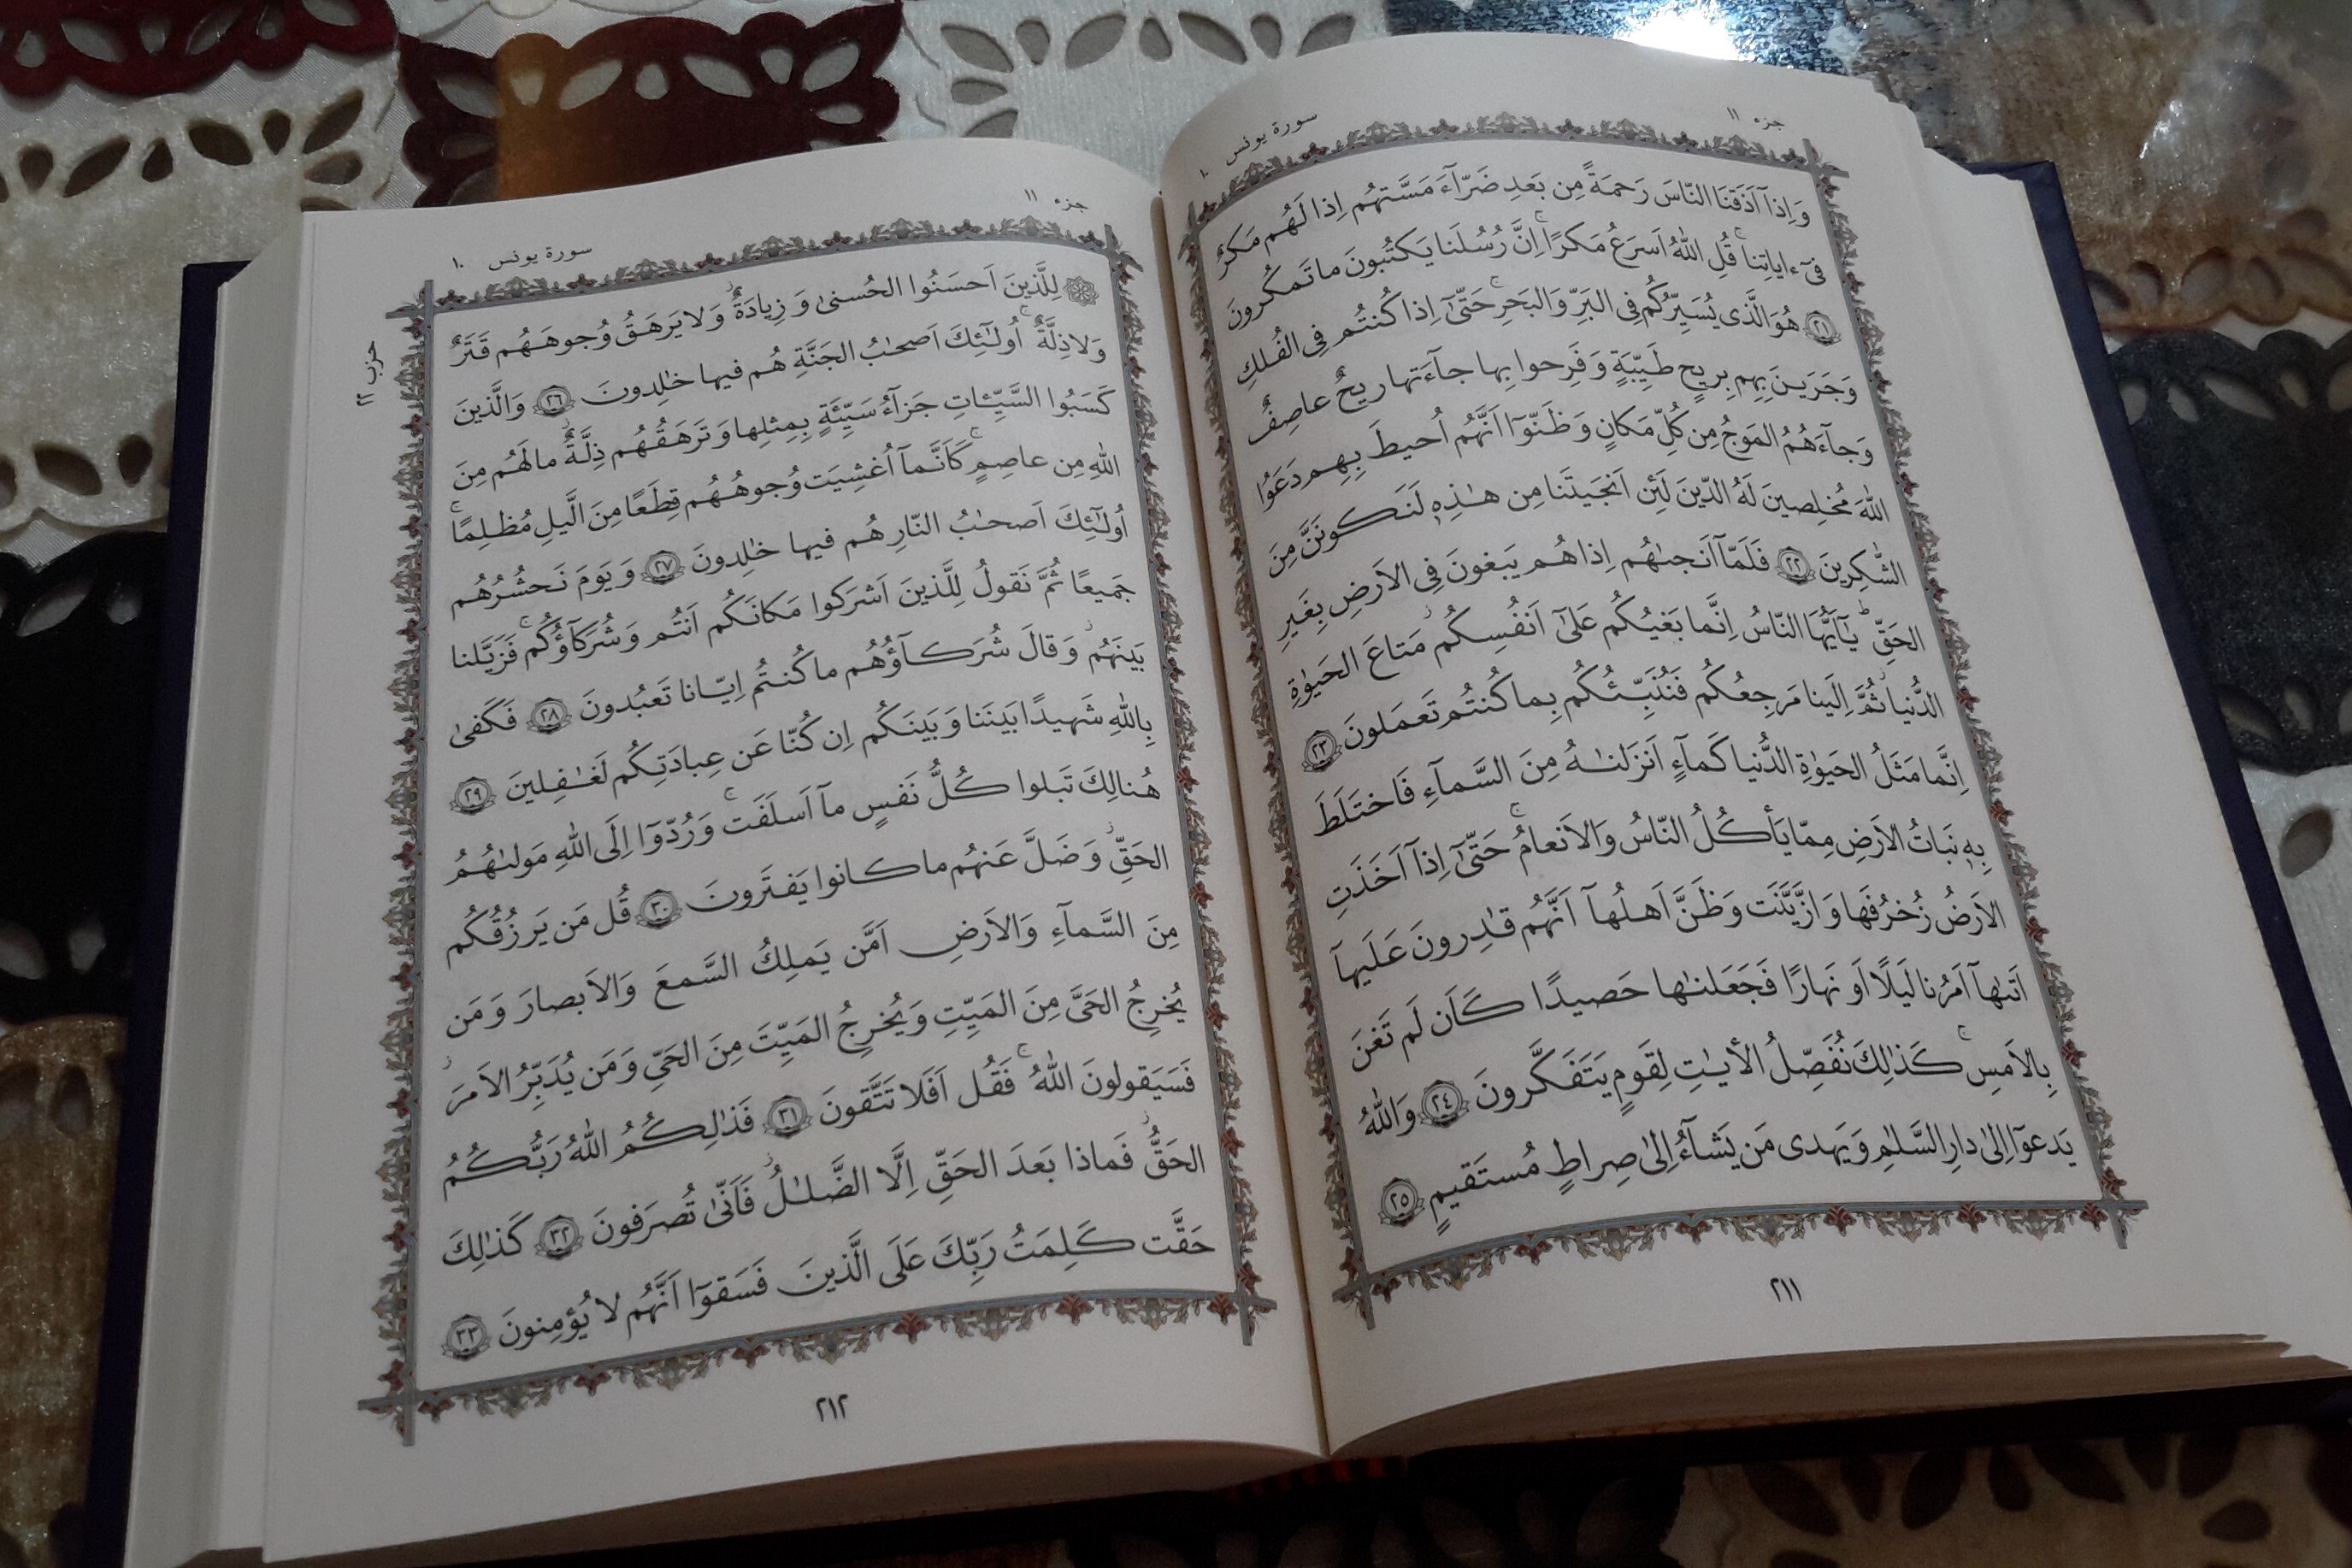 جزء ١١
سورة يونس ١٠
وَاِذآ اَذَقنَا النّاسَ رَحمَةً مِن بَعدِ ضَرّآءَ مَسَّتهُم اِذا لَهُم مَكرٌ
فىٓ ءاياتِنا ۚ قُلِ اللّٰهُ اَسرَعُ مَكرًا ۚ اِنَّ رُسُلَنا يَكتُبونَ ما تَمكُرونَ
﴿٢١﴾ هُوَ الَّذى يُسَيِّرُكُم فِى البَرِّ وَالبَحرِ ۚ حَتّىٰٓ اِذا كُنتُم فِى الفُلكِ
وَجَرَينَ بِهِم بِريحٍ طَيِّبَةٍ وَفَرِحوا بِها جآءَتها ريحٌ عاصِفٌ
وَجآءَهُمُ المَوجُ مِن كُلِّ مَكانٍ وَظَنّوٓا اَنَّهُم اُحيطَ بِهِم دَعَوُا
اللّٰهَ مُخلِصينَ لَهُ الدّينَ لَئِن اَنجَيتَنا مِن هٰذِهِ لَنَكونَنَّ مِنَ
الشّٰكِرينَ ﴿٢٢﴾ فَلَمّآ اَنجىٰهُم اِذا هُم يَبغونَ فِى الاَرضِ بِغَيرِ
الحَقِّ ۗ يٰٓاَيُّهَا النّاسُ اِنَّما بَغيُكُم عَلىٰٓ اَنفُسِكُم ۖ مَتاعَ الحَيوٰةِ
الدُّنيا ۖ ثُمَّ اِلَينا مَرجِعُكُم فَنُنَبِّئُكُم بِما كُنتُم تَعمَلونَ ﴿٢٣﴾
اِنَّما مَثَلُ الحَيوٰةِ الدُّنيا كَمآءٍ اَنزَلنٰهُ مِنَ السَّمآءِ فَاختَلَطَ
بِهِ نَباتُ الاَرضِ مِمّا يَأكُلُ النّاسُ وَالاَنعامُ ۚ حَتّىٰٓ اِذآ اَخَذَتِ
الاَرضُ زُخرُفَها وَازَّيَّنَت وَظَنَّ اَهلُهآ اَنَّهُم قٰدِرونَ عَلَيهآ
اَتىٰهآ اَمرُنا لَيلًا اَو نَهارًا فَجَعَلنٰها حَصيدًا كَاَن لَم تَغنَ
بِالاَمسِ ۚ كَذٰلِكَ نُفَصِّلُ الأيٰتِ لِقَومٍ يَتَفَكَّرونَ ﴿٢٤﴾ وَاللّٰهُ
يَدعوٓا اِلىٰ دارِ السَّلٰمِ وَيَهدى مَن يَشآءُ اِلىٰ صِراطٍ مُستَقيمٍ ﴿٢٥﴾
٢١١
جزء ١١
سورة يونس ١٠
حزب ٢٢
۞ لِلَّذينَ اَحسَنُوا الحُسنىٰ وَزِيادَةٌ ۖ وَلا يَرهَقُ وُجوهَهُم قَتَرٌ
وَلا ذِلَّةٌ ۚ اُولٰٓئِكَ اَصحٰبُ الجَنَّةِ هُم فيها خٰلِدونَ ﴿٢٦﴾ وَالَّذينَ
كَسَبُوا السَّيِّـٔاتِ جَزآءُ سَيِّئَةٍ بِمِثلِها وَتَرهَقُهُم ذِلَّةٌ ۖ ما لَهُم مِنَ
اللّٰهِ مِن عاصِمٍ ۖ كَاَنَّمآ اُغشِيَت وُجوهُهُم قِطَعًا مِنَ الَّيلِ مُظلِمًا ۚ
اُولٰٓئِكَ اَصحٰبُ النّارِ هُم فيها خٰلِدونَ ﴿٢٧﴾ وَيَومَ نَحشُرُهُم
جَميعًا ثُمَّ نَقولُ لِلَّذينَ اَشرَكوا مَكانَكُم اَنتُم وَشُرَكآؤُكُم ۚ فَزَيَّلنا
بَينَهُم ۖ وَقالَ شُرَكآؤُهُم ما كُنتُم اِيّانا تَعبُدونَ ﴿٢٨﴾ فَكَفىٰ
بِاللّٰهِ شَهيدًا بَينَنا وَبَينَكُم اِن كُنّا عَن عِبادَتِكُم لَغٰفِلينَ ﴿٢٩﴾
هُنالِكَ تَبلوا كُلُّ نَفسٍ مآ اَسلَفَت ۚ وَرُدّوٓا اِلَى اللّٰهِ مَولىٰهُمُ
الحَقِّ ۖ وَضَلَّ عَنهُم ما كانوا يَفتَرونَ ﴿٣٠﴾ قُل مَن يَرزُقُكُم
مِنَ السَّمآءِ وَالاَرضِ اَمَّن يَملِكُ السَّمعَ وَالاَبصارَ وَمَن
يُخرِجُ الحَىَّ مِنَ المَيِّتِ وَيُخرِجُ المَيِّتَ مِنَ الحَىِّ وَمَن يُدَبِّرُ الاَمرَ ۖ
فَسَيَقولونَ اللّٰهُ ۚ فَقُل اَفَلا تَتَّقونَ ﴿٣١﴾ فَذٰلِكُمُ اللّٰهُ رَبُّكُمُ
الحَقُّ ۖ فَماذا بَعدَ الحَقِّ اِلَّا الضَّلٰلُ ۖ فَاَنّىٰ تُصرَفونَ ﴿٣٢﴾ كَذٰلِكَ
حَقَّت كَلِمَتُ رَبِّكَ عَلَى الَّذينَ فَسَقوٓا اَنَّهُم لا يُؤمِنونَ ﴿٣٣﴾
٢١٢